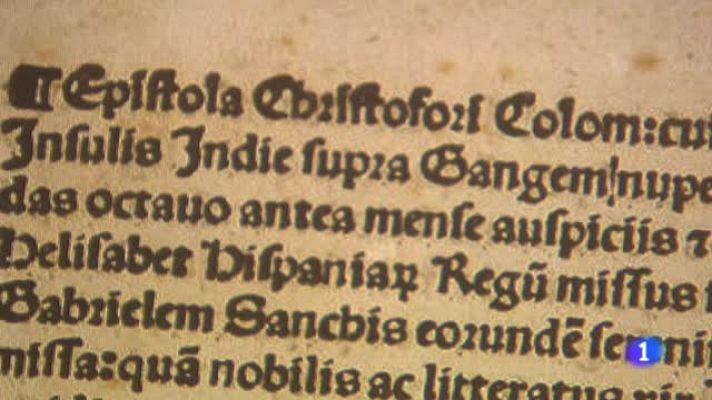 ¶ Epiſtola Chriſtofori Colom: cui
Inſulis Indie ſupra Gangem/nupe
das octauo antea menſe auſpiciis ⁊
Heliſabet Hiſpaniaꝝ Regū miſſus
Gabrielem Sanchis eorundē
miſſa: quā nobilis ac litteratus vir
1